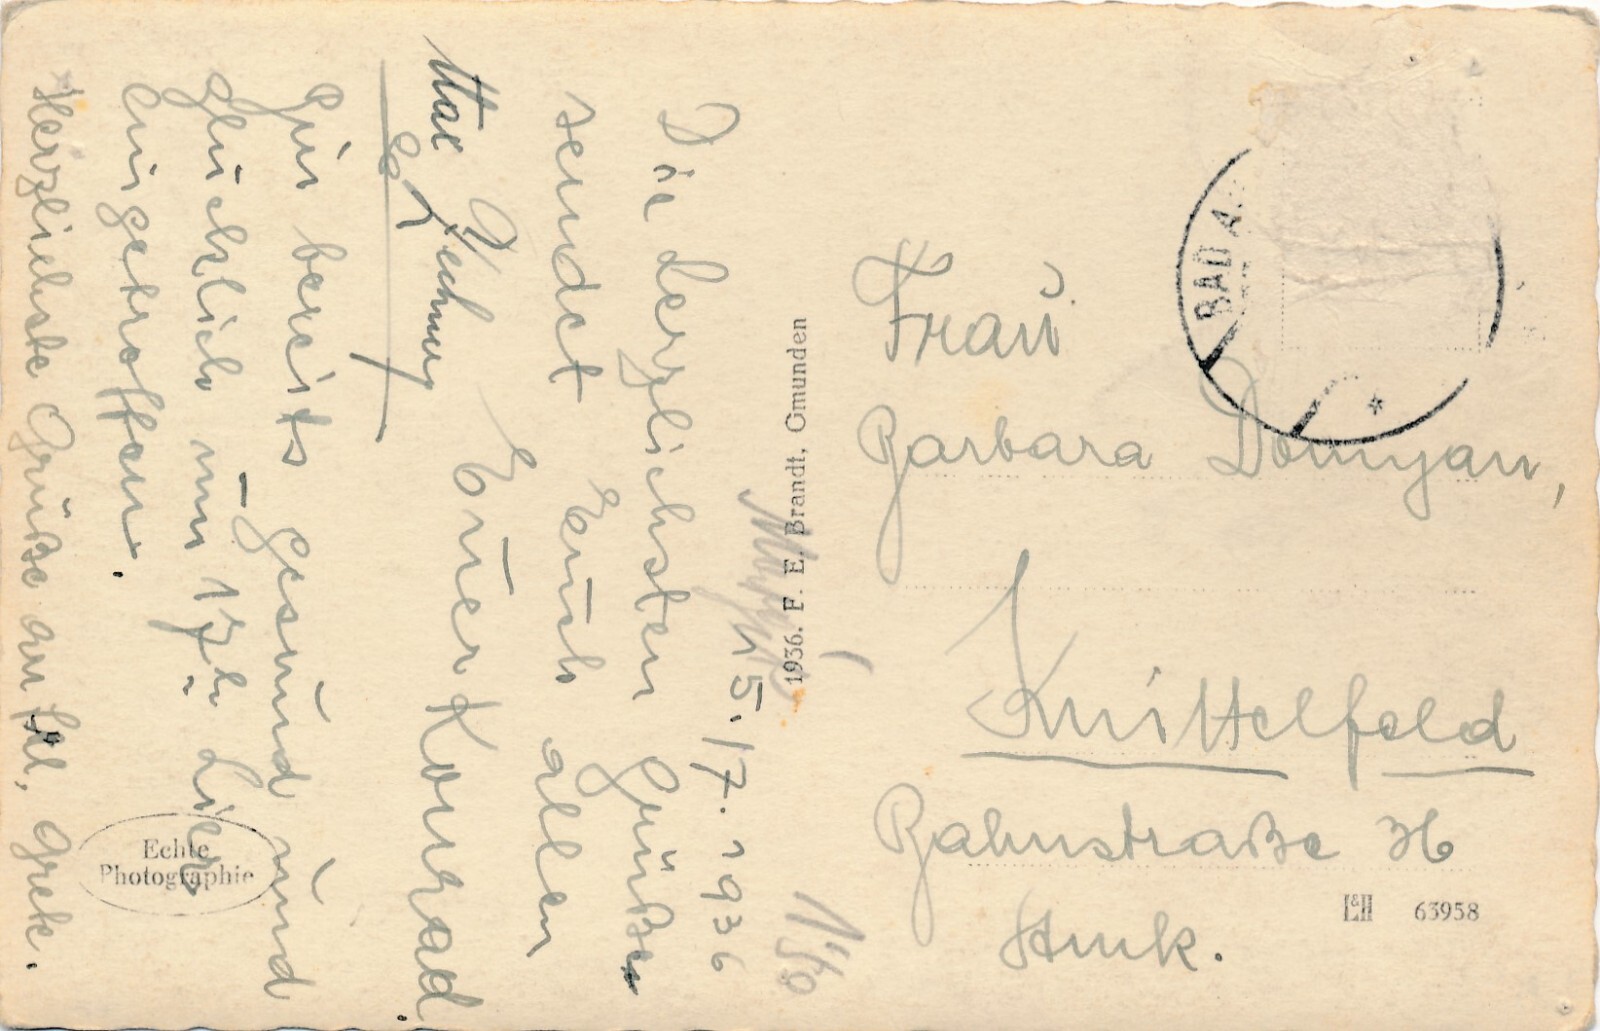 15./7. 1936
Die herzlichsten Grüße
sendet Euch allen
Euer Konrad.
Bin bereits gesund und
glücklich um 17h hier
eingetroffen.
Herzlichste Grüße an Grete.
1936. F. E. Brandt, Gmunden
Echte
Photographie
BAD A
Frau
Barbara Domyan,
Knittelfeld
Bahnstraße 36
Stmk.
L&H 63958